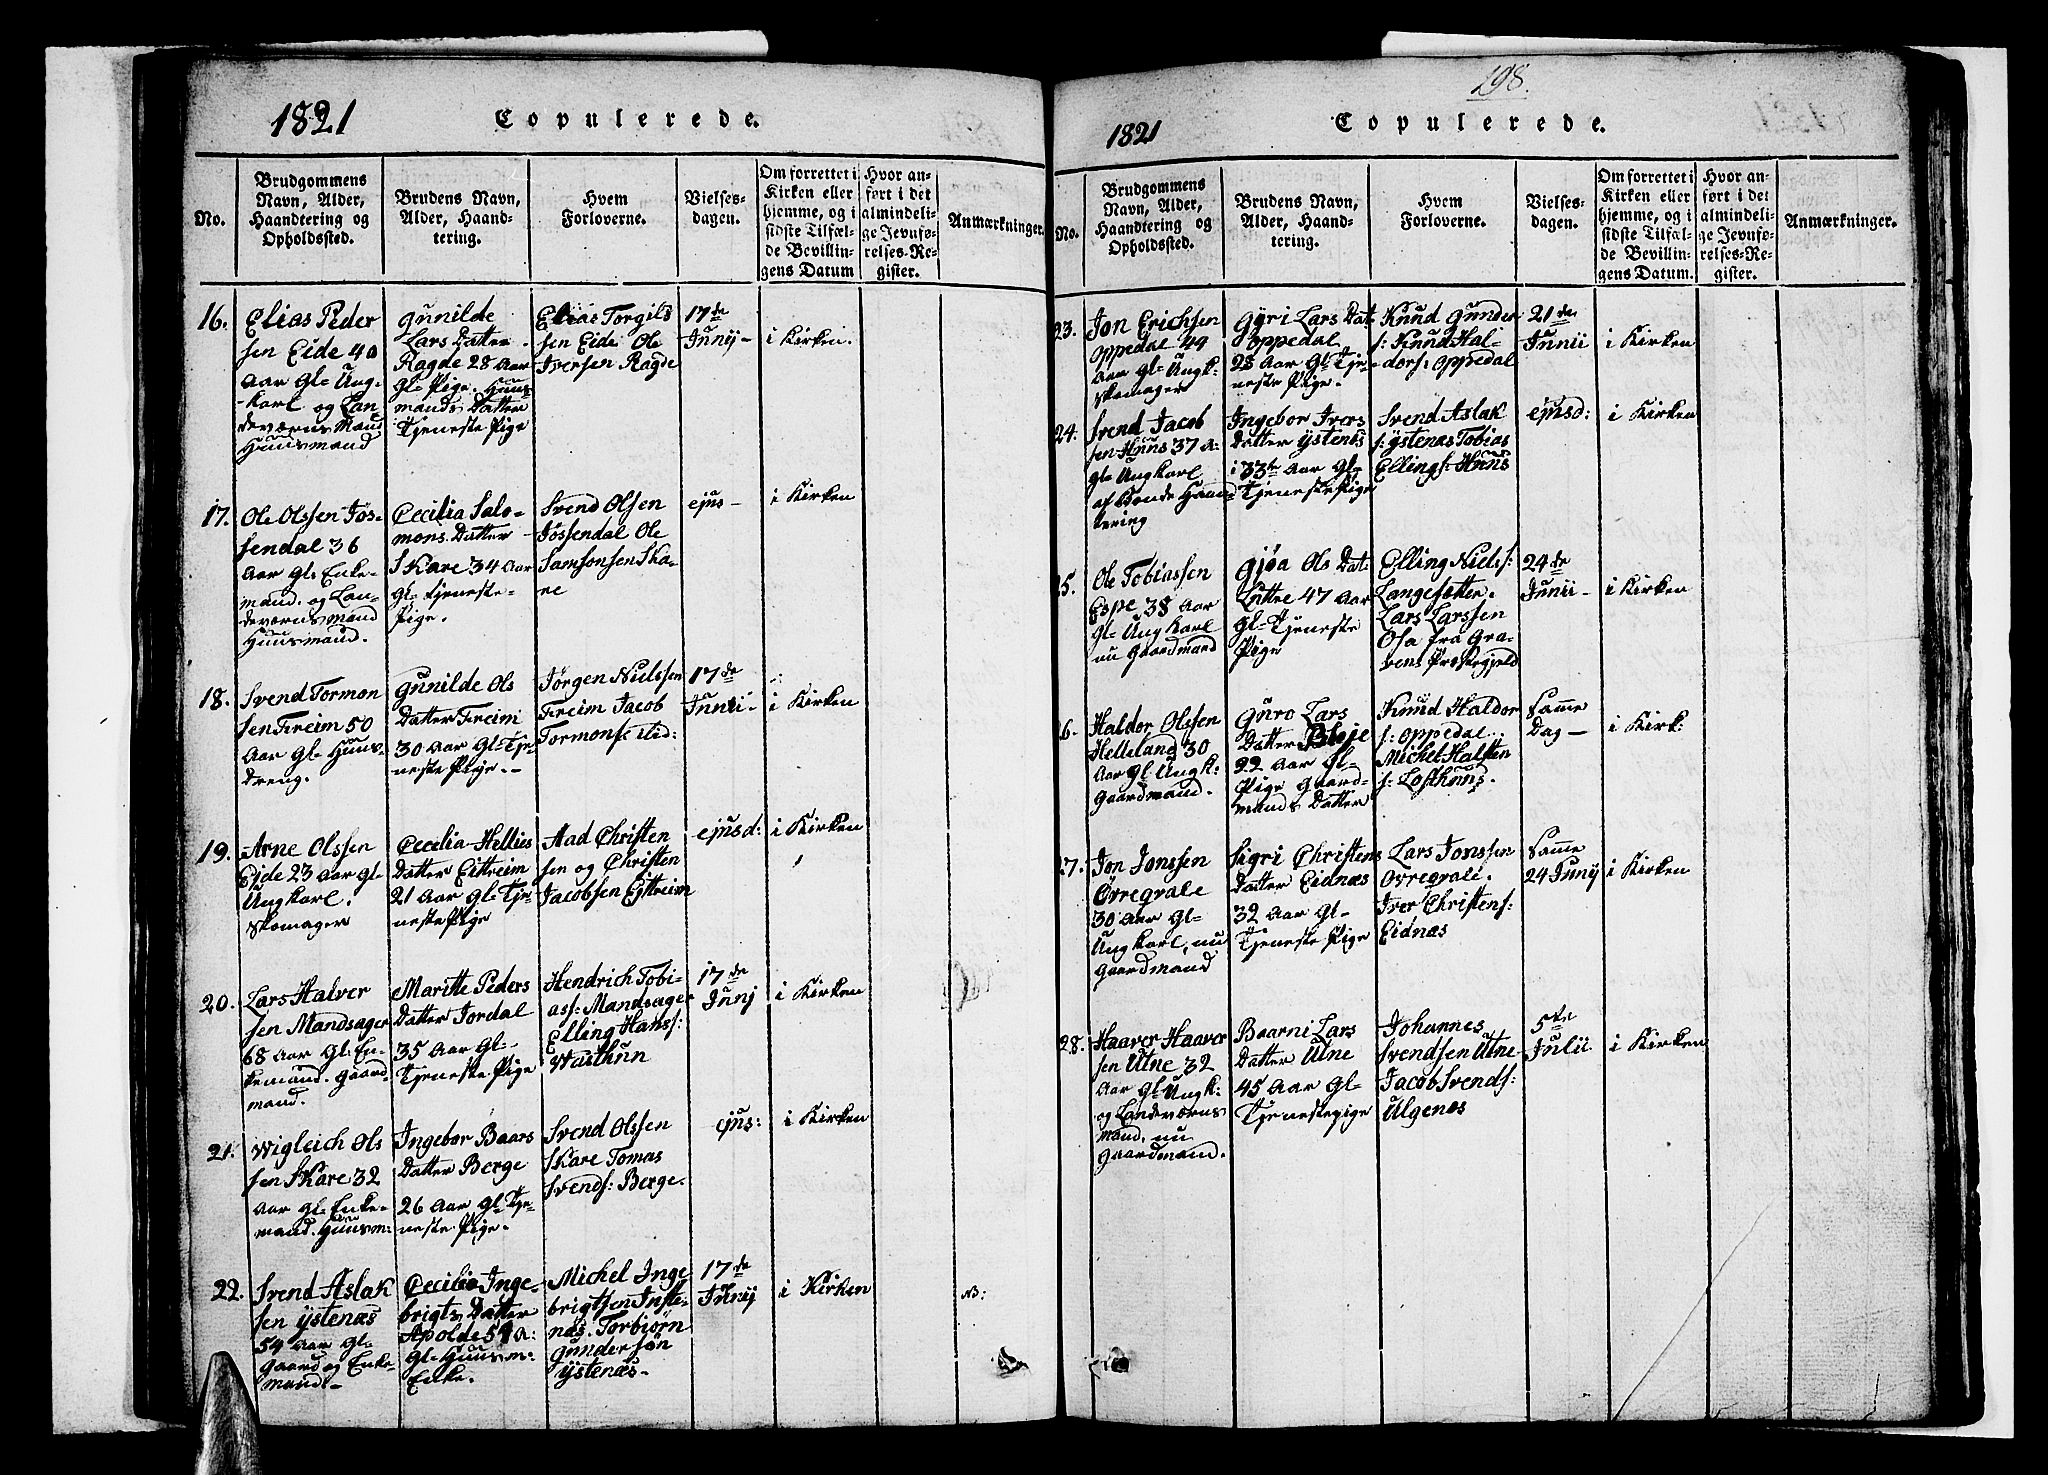 1821
Copulerede.
No.
Brudgommens
Navn, Alder,
Haandtering og
Opholdssted.
Brudens Navn,
Alder, Haand-
tering.
Hvem
Forloverne.
Vielses-
dagen.
Om forrettet i
Kirken eller
hjemme, og i
sidste Tilfæl-
de Bevillin-
gens Datum
Hvor an-
ført i det
almindeli-
ge Jevnfø-
relses-Re-
gister.
Anmærkninger.
16.
Elias Peder
sen Eide 40
Aar Gl= Ung-
-karl og Lan-
deværns Mand
Huusmand
Gunilde
Lars Datter
Ragde 28 Aar
Gl= Pige. Huus-
mands Datter
Tjeneste Pige
Elias Torgils
sen Eide Ole
Iversen Ragde
17de
Junij-
i Kirken.
17.
Ole Olssen Jøs-
sendal 36
Aar Gl: Enke-
mand. og Lan-
deværns mand
Huusmand.
Cecilia Salo-
mons. Datter
Skare 34 Aar
Gl= Tjeneste-
Pige.
Svend Olsen
Jøssendal Ole
Samsonsen Ska-
re
ejus-
i Kirken
18.
Svend Tormon
sen Freim 50
Aar Gl= Huus-
Dreng.
Gunilde Ols
Datter Freim
30 Aar Gl= Tje-
neste Pige.-
Jørgen Nielssen
Freim Jacob
Tormons: ibid:
17de
Junii-
i Kirken
19.
Arne Olssen
Eide 23 Aar Gl=
Ungkarl.
Skomager
Cecilia Hellies
Datter Eittreim
21 Aar Gl= Tje-
neste Pige
Aad Christen
sen og Christen
Jacobsen Eittreim
ejusd:
i Kirken
20.
Lars Halver
sen Mandsager
68 Aar Gl: En-
kemand. Gaard-
mand.
Maritte Peders
Datter Jordal
35 Aar Gl=
Tjeneste Pige
Hendrich Tobi-
ass: Mandsager
Elling Hanss:
Wasthun
17de
Junj
i Kirken
21.
Wigleich Ols
sen Skare 32
Aar Gl= Enke-
mand. Huusm:
Ingebor Baars
Datter Berge
26 Aar Gl= Tje-
neste Pige.
Svend Olssen
Skare Tomas
Svends: Berge.
ejus:
i Kirken
22.
Svend Aslak
sen Ystenæs
54 Aar Gl=
Gaard og Enke-
mand-
Cecilia Inge-
brigts Datter
Apolde 51 A:
Gl= Huusm:
Enke.
Michel Inge
brigtsen Inste-
næs. Torbiørn
Gundersøn
Ystenæs-
17de
Junij
i Kirken
NB:
198.
1821
Copulerede.
No.
Brudgommens
Navn, Alder,
Haandtering og
Opholdssted.
Brudens Navn,
Alder, Haand-
tering.
Hvem
Forloverne.
Vielses-
dagen.
Om forrettet i
Kirken eller
hjemme, og i
sidste Tilfæl-
de Bevillin-
gens Datum.
Hvor an-
ført i det
almindeli-
ge Jevnfø-
relses-Re-
gister.
Anmærkninger.
23.
Jon Erichsen
Oppedal 49
Aar Gl= Ungk:
Skomager
Gyri Lars Dat
Oppedal.
28 Aar Gl= Tje-
neste Pige.
Knud Gunder
s: Knud Hal-
dors: Oppedal
21de
Junii
i Kirken
24.
Svend Jacob
sen Huus 37 A:
Gl= Ungkarl
af Bonde Haand-
tering
Ingebor Ivers
Datter Ystenæs
i 33te Aar Gl=
Tjeneste Pige
Svend Aslak
s: Ystenæs Tobias
Ellings: Huus
ejusd:
i Kirken
25.
Ole Tobiassen
Espe 38 Aar
Gl= Ungkarl
nu Gaardmand
Gjøa Ols Dat-
Luttre 47 Aar
Gl= Tjeneste
Pige
Elling Niels:
Langesætter.
Lars Larssen
Osa fra Gra-
vens Præstegjeld
24de
Junii-
i Kirken
26.
Haldor Olssen
Helleland 30
Aar Gl. Ungk:
Gaardmand.
Guro Lars
Datter Bleje
22 Aar Gl=
Pige Gaard-
mands Datter
Knud Haldor
s: Oppedal.
Michel Halsten
s: Lofthuus.
Samme
Dag-
i Kirk:
27.
Jon Jonssen
Øvregvale
30 Aar Gl=
Ungkarl, nu
Gaardmand
Sigri Christens
Datter Eidnæs
32 Aar Gl-
Tjeneste Pige
Lars Jonssen
Ovregvale.
Iver Christens:
Eidnæs
Samme
24 Junij
i Kirken
28.
Haaver Haaver
sen Utne 32
Aar Gl= Ungk:
og Landeværns
mand. nu
Gaardmand.
Baarni Lars
Datter Utne
45 Aar Gl-
Tjenestepige
Johannes
Svendsen Utne
Jacob Svends:
Ulgenæs
5te
Julii
i Kirken